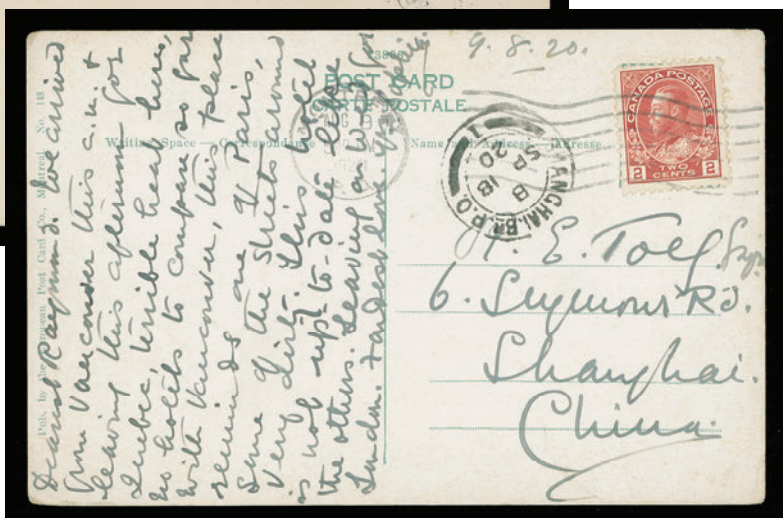 23800
POST CARD
CARTE POSTALE
Writing Space — Correspondance
Name and Address — Adresse
Pub. by the European Post Card Co., Montreal. No. 148
9. 8. 20.
CANADA POSTAGE
2 TWO CENTS 2
AUG 8
SHANGHAI BR. P.O.
B
18
SP
20
1
Dearest Raymond. We arrived
from Vancouver this a.m. &
leaving this afternoon for
Quebec, terrible heat here,
no hotels to compare so far
with Vancouver, this place
reminds one of Paris,
Some of the streets around
very dirty. This hotel
is not up-to-date like
the others. Leaving on Wed. for
London. Fondest love.
E.
6. Seymour Rd.
Shanghai.
China.